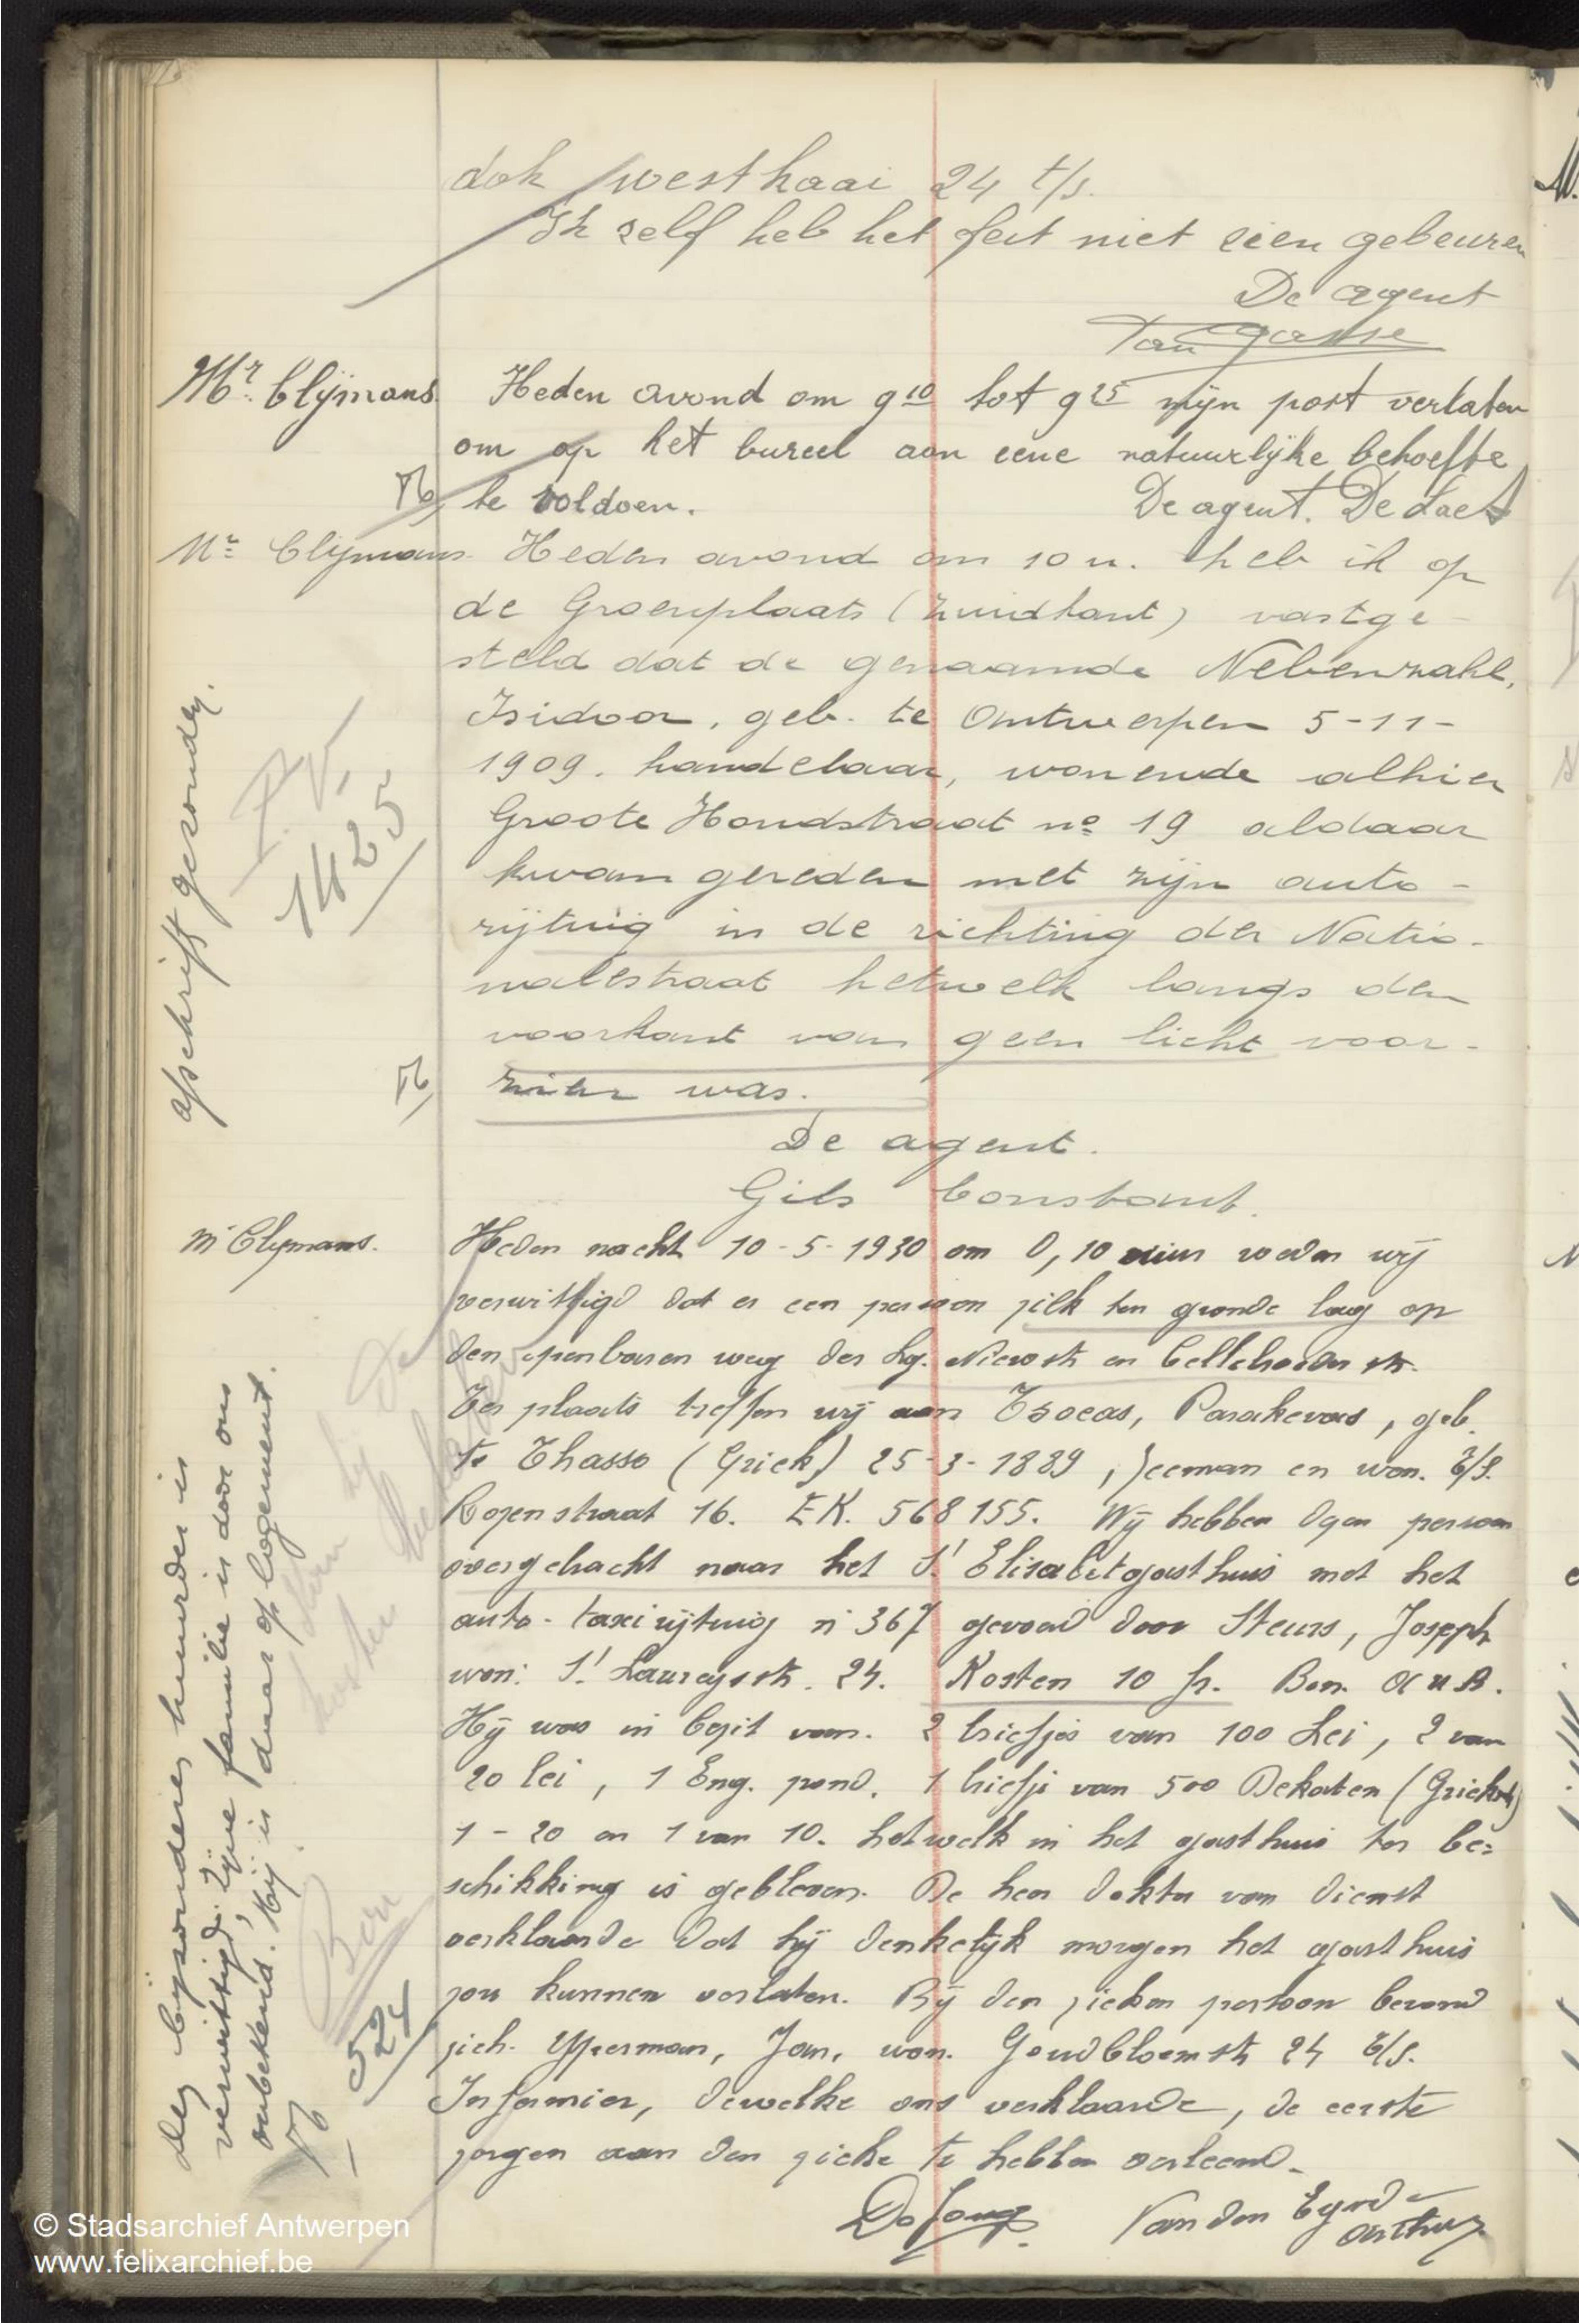 dok westkaai 24 t/s.
Ik zelf heb het feit niet zien gebeuren
De agent
Van Gasse
Mr. Clijmans
Heden avond om 9 10 tot 9 25 mijn post verlaten
om op het bureel aan eene natuurlijke behoefte
te voldoen.
De agent. De Laet
Mr. Clijmans
Heden avond om 10 u. heb ik op
de Groenplaats (Zuidkant) vastge-
steld dat de genaamde Nebenzahl,
Isidoor, geb. te Antwerpen 5-11-
1909. handelaar, wonende alhier
Groote Hondstraat no 19 aldaar
kwam gereden met zijn auto-
rijtuig in de richting der Natio-
nalestraat hetwelk langs den
voorkant van geen licht voor-
zien was.
De agent.
Gils Constant.
afschrift gezonden.
P.V.
1425
Mr Clijmans.
Heden nacht 10-5-1930 om 0,10 uur werden wij
verwittigd dat er een persoon ziek ten gronde lag op
den openbaren weg der Lg. Nieuwstr en Cellebroederstr.
Ter plaats treffen wij aan Tsoeas, Parakevas, geb.
te Thasso (Griek) 25-3-1889, zeeman en won. t/s.
Rozenstraat 16. E.K. 568155. Wij hebben dezen persoon
overgebracht naar het St Elisabetgasthuis met het
auto-taxirijtuig n° 367 gevoerd door Steurs, Joseph
won: St Laureysstr. 24. Kosten 10 fr. Bon.
Hij was in bezit van. 2 briefjes van 100 Lei, 2 van
20 lei, 1 Eng. pond. 1 briefje van 500 Dekaten (Grieksch)
1-20 en 1 van 10. hetwelk in het gasthuis ter be-
schikking is gebleven. De heer dokter van dienst
verklaarde dat hij denkelijk morgen het gasthuis
zou kunnen verlaten. Bij den zieken persoon bevond
zich. Ypserman, Jan, won. Goudbloemstr 24 t/s.
Infirmier, dewelke ons verklaarde, de eerste
zorgen aan den zieke te hebben verleend.
De Jong Van den Eynde
Arthur
Der bijzonderes huurder is
verwittigd. Zijne familie is door ons
onbekend. Hij is daar op logement.
Bon
524
© Stadsarchief Antwerpen
www.felixarchief.be